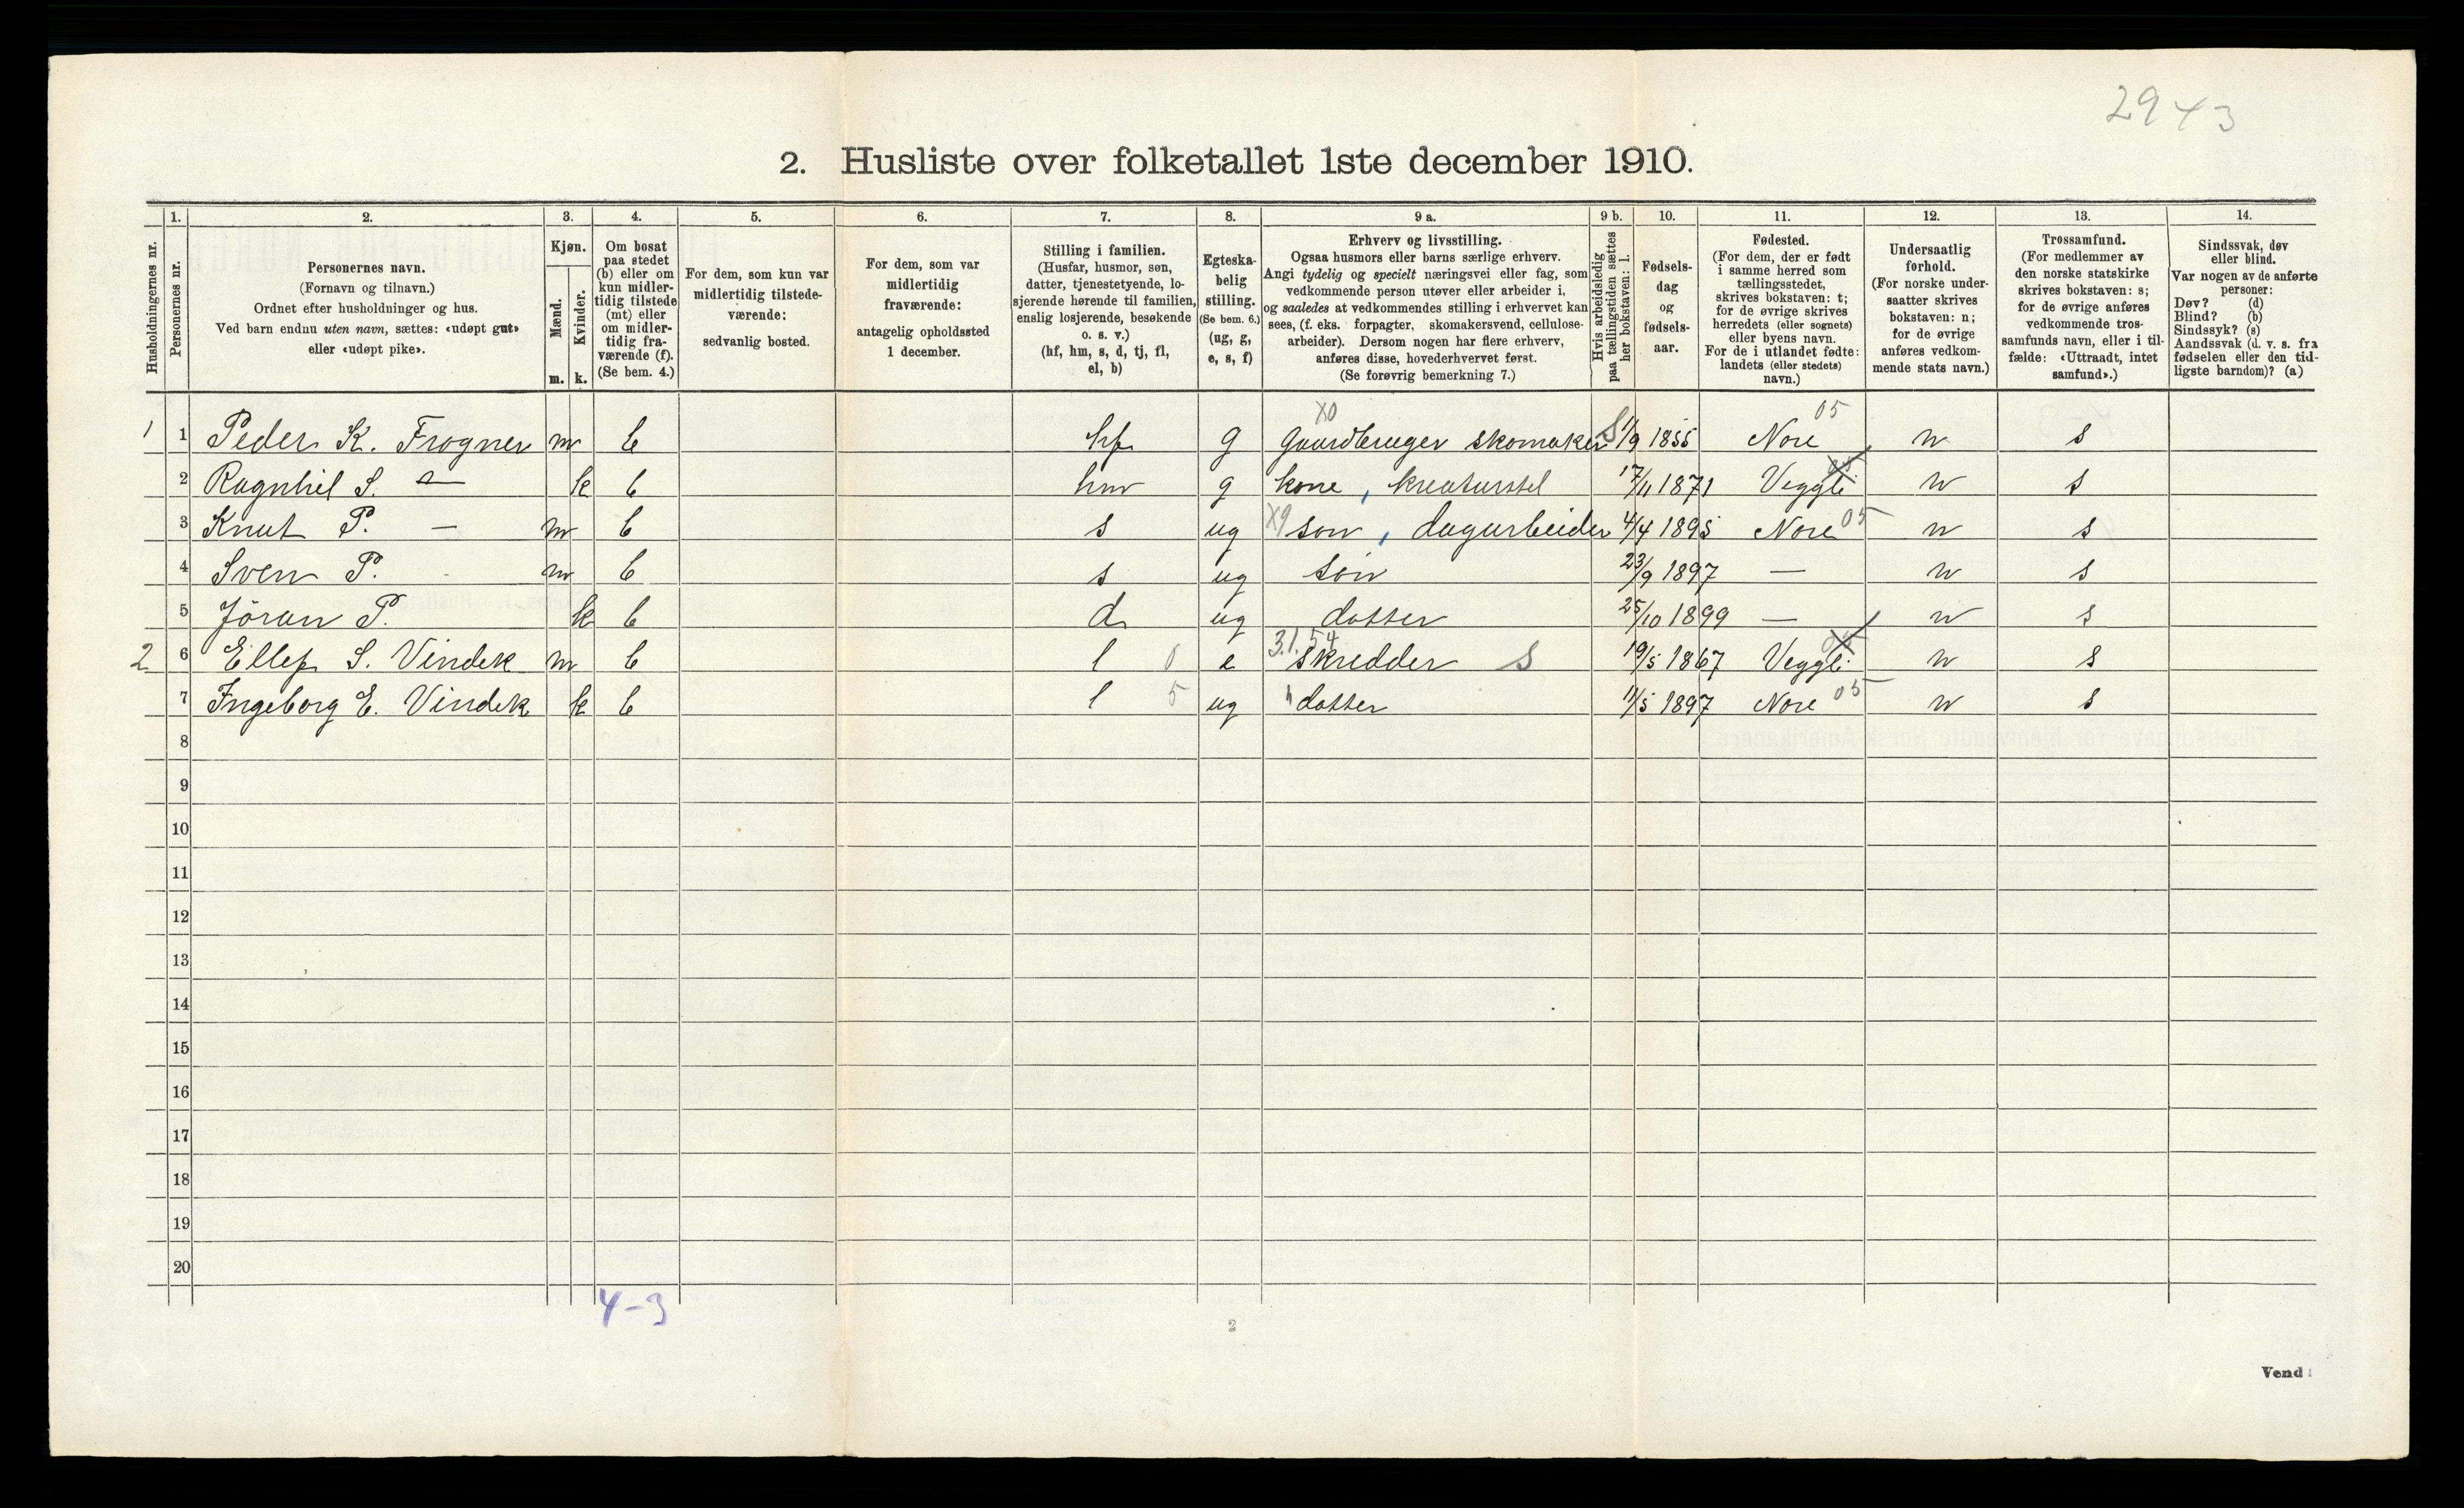 2943
2. Husliste over folketallet 1ste december 1910.
1. 2. 3. 4. 5. 6. 7. 8. 9 a. 9 b. 10. 11. 12. 13. 14.
Husholdningernes nr.
Personernes nr.
Personernes navn.
(Fornavn og tilnavn.)
Ordnet efter husholdninger og hus.
Ved barn endnu uten navn, sættes: «udøpt gut»
eller «udøpt pike».
Kjøn.
Mænd.
Kvinder.
m. k.
Om bosat
paa stedet
(b) eller om
kun midler-
tidig tilstede
(mt) eller
om midler-
tidig fra-
værende (f).
(Se bem. 4.)
For dem, som kun var
midlertidig tilstede-
værende:
sedvanlig bosted.
For dem, som var
midlertidig
fraværende:
antagelig opholdssted
1 december.
Stilling i familien.
(Husfar, husmor, søn,
datter, tjenestetyende, lo-
sjerende hørende til familien,
enslig losjerende, besøkende
o. s. v.)
(hf, hm, s, d, tj, fl,
el, b)
Egteska-
belig
stilling.
(Se bem. 6.)
(ug, g,
e, s, f)
Erhverv og livsstilling.
Ogsaa husmors eller barns særlige erhverv.
Angi tydelig og specielt næringsvei eller fag, som
vedkommende person utøver eller arbeider i,
og saaledes at vedkommendes stilling i erhvervet kan
sees, (f. eks. forpagter, skomakersvend, cellulose-
arbeider). Dersom nogen har flere erhverv,
anføres disse, hovederhvervet først.
(Se forøvrig bemerkning 7.)
Hvis arbeidsledig
paa tællingstiden sættes
her bokstaven: l.
Fødsels-
dag
og
fødsels-
aar.
Fødested.
(For dem, der er født
i samme herred som
tællingsstedet,
skrives bokstaven: t;
for de øvrige skrives
herredets (eller sognets)
eller byens navn.
For de i utlandet fødte:
landets (eller stedets)
navn.)
Undersaatlig
forhold.
(For norske under-
saatter skrives
bokstaven: n;
for de øvrige
anføres vedkom-
mende stats navn.)
Trossamfund.
(For medlemmer av
den norske statskirke
skrives bokstaven: s;
for de øvrige anføres
vedkommende tros-
samfunds navn, eller i til-
fælde: «Uttraadt, intet
samfund».)
Sindssvak, døv
eller blind.
Var nogen av de anførte
personer:
Døv? (d)
Blind? (b)
Sindssyk? (s)
Aandssvak (d. v. s. fra
fødselen eller den tid-
ligste barndom)? (a)
X0 05
1 1 Peder K. Frogner m b hf g Gaardbruger skomaker S 1/9 1855 Nore n s
2 Ragnhil S. — k b hm g kone, kreaturstel 17/11 1871 Veggli 05 n s
3 Knut P. — m b s ug X9 søn, dagarbeider 4/4 1895 Nore 05 n s
4 Sven P. m b s ug søn 23/9 1897 — n s
5 Jöran P. k b d ug datter 25/10 1899 — n s
3.1.54
2 6 Ellef S. Vindek m b l 0 e skredder S 19/5 1867 Veggli 05 n s
7 Ingeborg E. Vindek k b l 5 ug " datter 11/5 1897 Nore 05 n s
8
9
10
11
12
13
14
15
16
17
18
19
20
4-3
2
Vend!